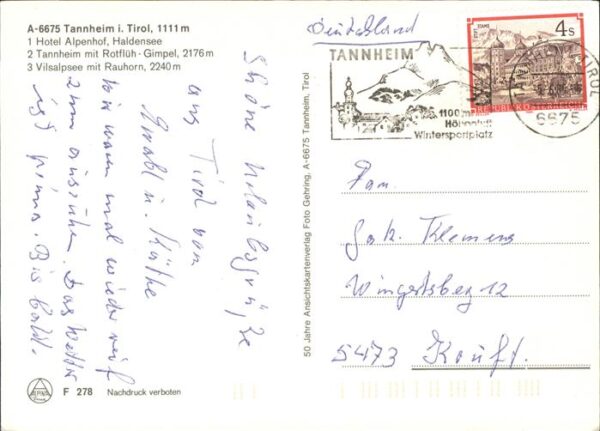 A-6675 Tannheim i. Tirol, 1111 m
1 Hotel Alpenhof, Haldensee
2 Tannheim mit Rotflüh - Gimpel, 2176 m
3 Vilsalpsee mit Rauhorn, 2240 m
Schöne Urlaubsgrüße
aus Tirol von
Ewald u. Käthe
Wir waren mal wieder reif
zum ausruhen. Das Wetter
ist prima. Bis bald.
F 278 Nachdruck verboten
50 Jahre Ansichtskartenverlag Foto Gehring, A-6675 Tannheim, Tirol
Deutschland
TANNHEIM
1100 m
Höhenluft
Wintersportplatz
4 S
STIFT STAMS
REPUBLIK ÖSTERREICH
TIROL
6675
Fam.
Jak. Klemens
Wingertsberg 12
5473 Kruft.